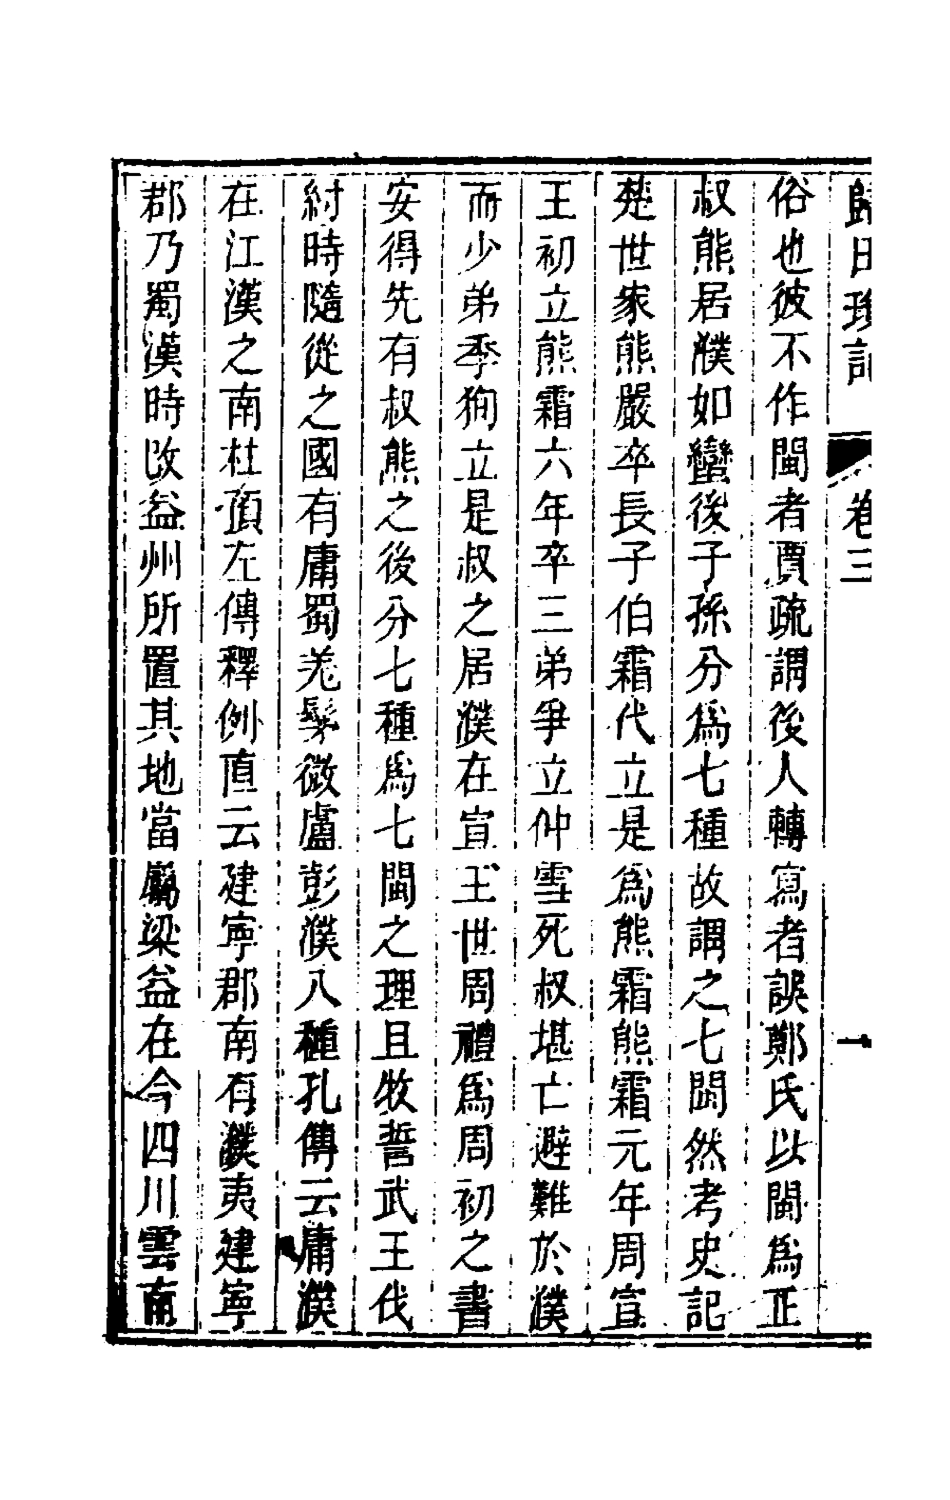 歸田瑣記 卷三 一
俗也彼不作閩者賈疏謂後人轉寫者誤鄭氏以閩爲正
叔熊居濮如蠻後子孫分爲七種故謂之七閩然考史記
楚世家熊嚴卒長子伯霜代立是爲熊霜熊霜元年周宣
王初立熊霜六年卒三弟爭立仲雪死叔堪亡避難於濮
而少弟季狥立是叔之居濮在宣王世周禮爲周初之書
安得先有叔熊之後分七種爲七閩之理且牧誓武王伐
紂時隨從之國有庸蜀羌髳微盧彭濮八種孔傳云庸濮
在江漢之南杜預左傳釋例直云建寧郡南有濮夷建寧
郡乃蜀漢時改益州所置其地當屬梁益在今四川雲南